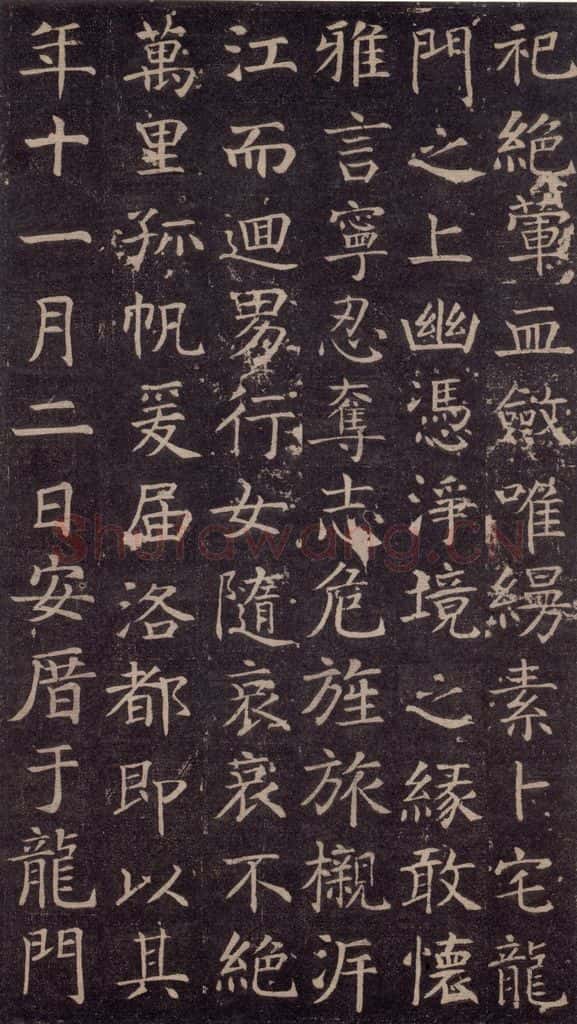 祀絶葷血斂唯縵素卜宅龍
門之上幽憑淨境之緣敢懷
雅言寧忍奪志危旌旅櫬泝
江而迴男行女隨哀哀不絶
萬里孤帆爰届洛都即以其
年十一月二日安厝于龍門
Shufawang.CN